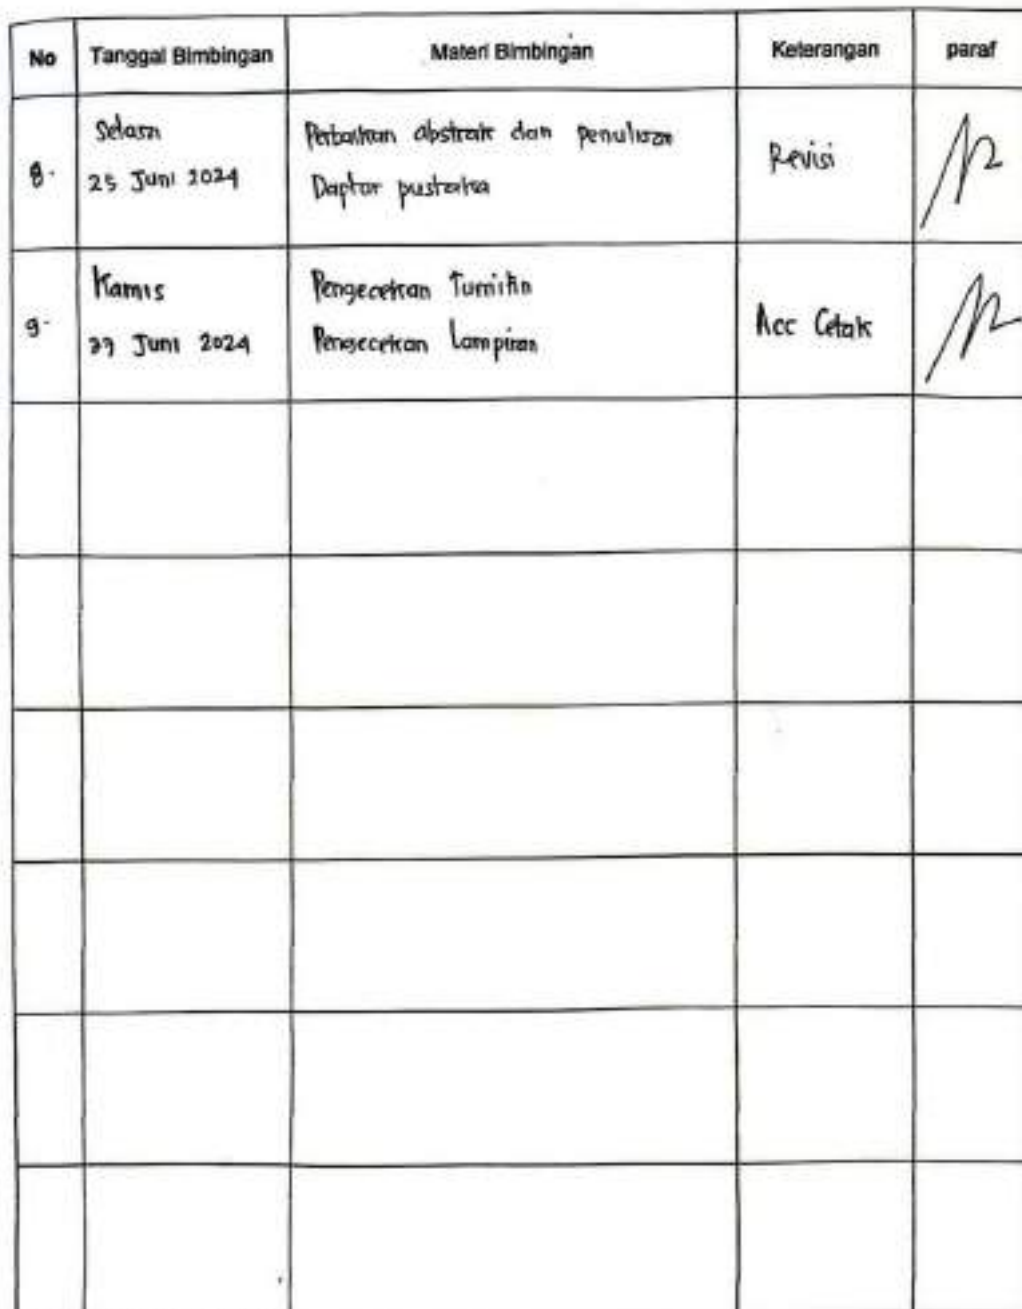 No Tanggal Bimbingan Materi Bimbingan Keterangan paraf
8. Selasa
25 Juni 2024
Perbaikan abstrak dan penulisan
Daptar pustaka
Revisi
9. Kamis
27 Juni 2024
Pengecekan Turnitin
Pengecekan Lampiran
Acc Cetak